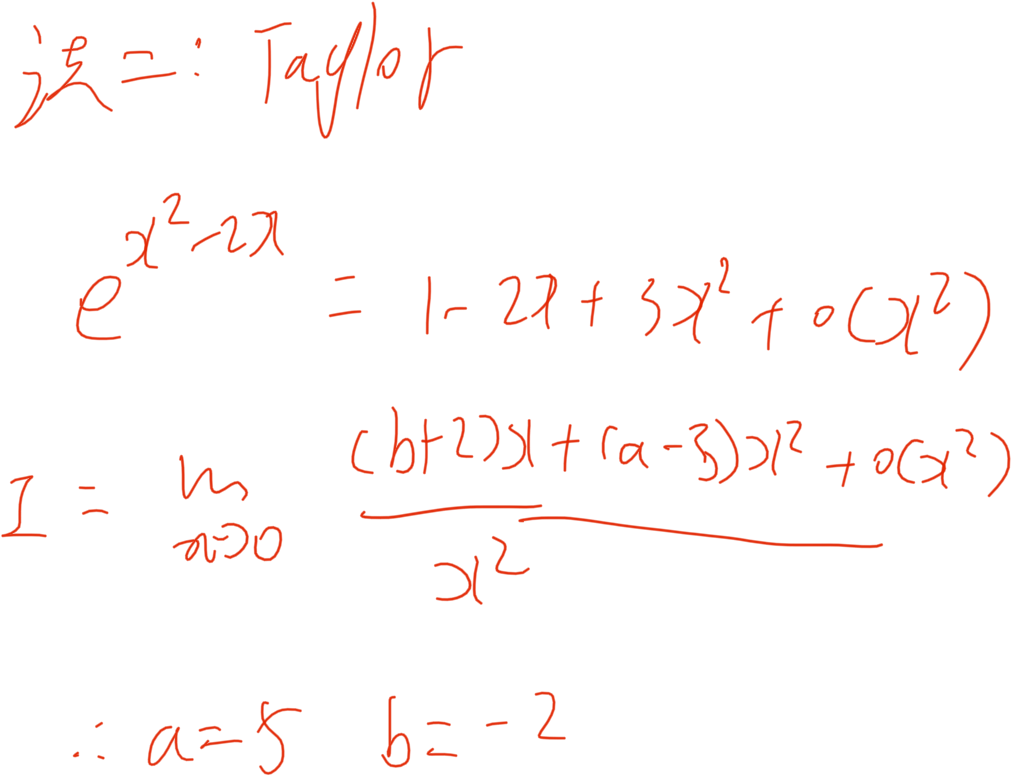 法二: Taylor
e^{x^2-2x} = 1-2x+3x^2+o(x^2)
I = lim_{x→0} \frac{(b+2)x+(a-3)x^2+o(x^2)}{x^2}
∴ a=5 b=-2